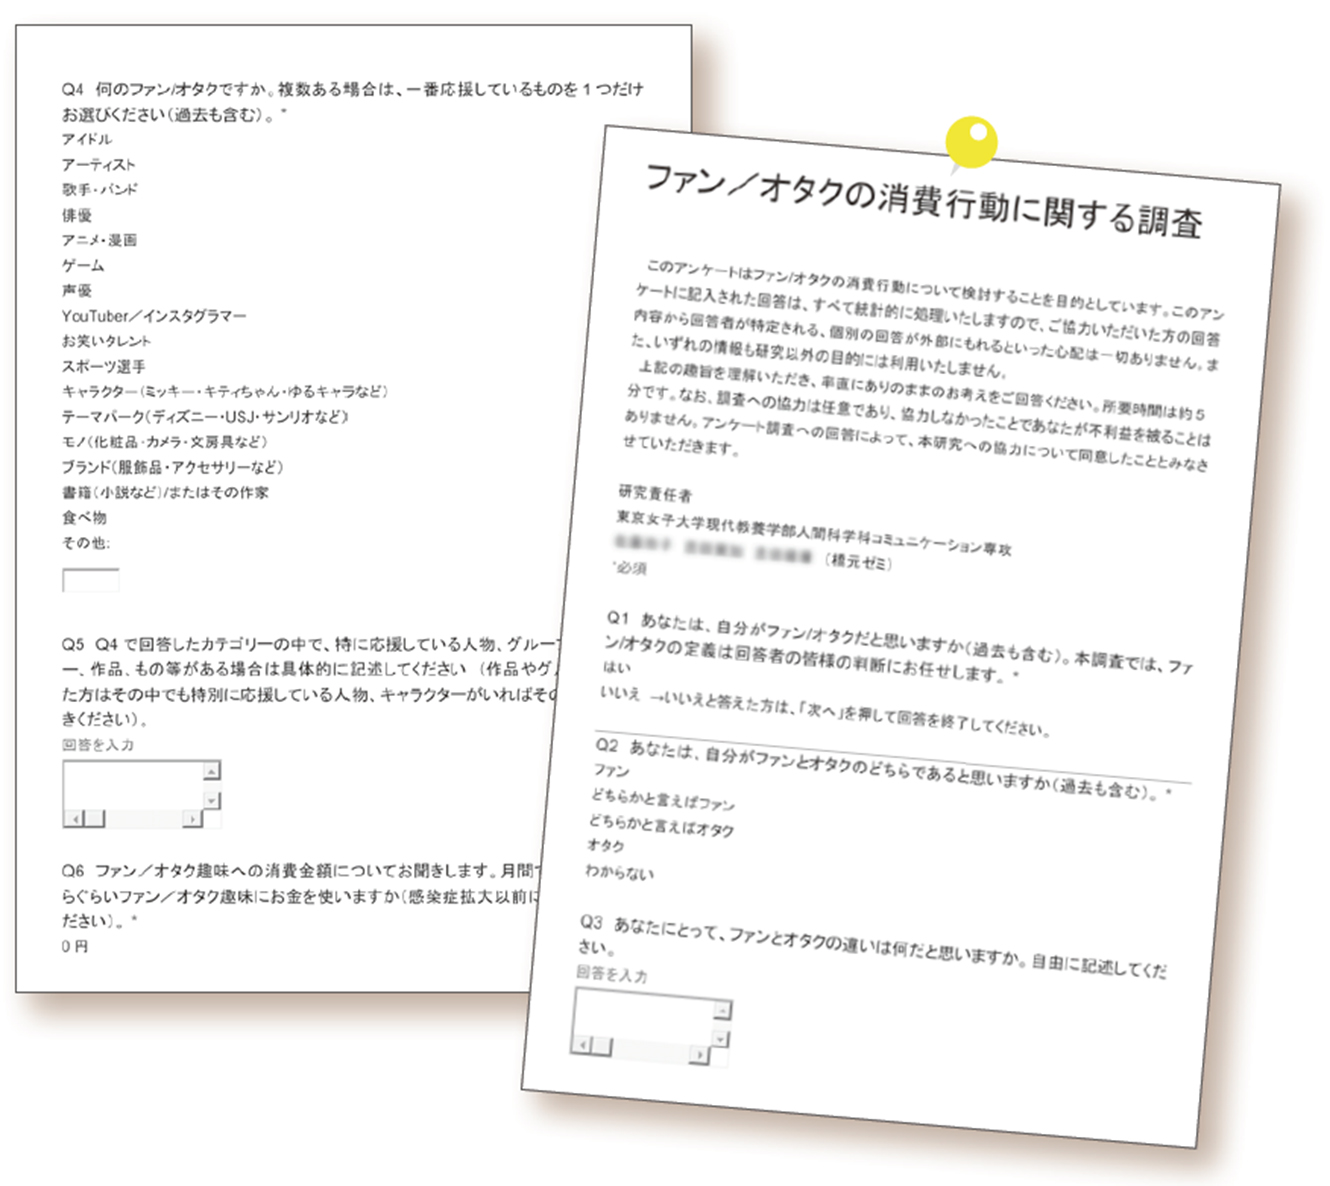 Q4 何のファン/オタクですか。複数ある場合は、一番応援しているものを1つだけ
お選びください(過去も含む)。*
アイドル
アーティスト
歌手・バンド
俳優
アニメ・漫画
ゲーム
声優
YouTuber／インスタグラマー
お笑いタレント
スポーツ選手
キャラクター(ミッキー・キティちゃん・ゆるキャラなど)
テーマパーク(ディズニー・USJ・サンリオなど)
モノ(化粧品・カメラ・文房具など)
ブランド(服飾品・アクセサリーなど)
書籍(小説など)/またはその作家
食べ物
その他:
Q5 Q4で回答したカテゴリーの中で、特に応援している人物、グルー
ー、作品、もの等がある場合は具体的に記述してください (作品やゲ
た方はその中でも特別に応援している人物、キャラクターがいればその
きください)。
回答を入力
Q6 ファン／オタク趣味への消費金額についてお聞きします。月間で
らぐらいファン／オタク趣味にお金を使いますか(感染症拡大以前に
ださい)。*
0円
ファン／オタクの消費行動に関する調査
このアンケートはファン/オタクの消費行動について検討することを目的としています。このアン
ケートに記入された回答は、すべて統計的に処理いたしますので、ご協力いただいた方の回答
内容から回答者が特定される、個別の回答が外部にもれるといった心配は一切ありません。ま
た、いずれの情報も研究以外の目的には利用いたしません。
上記の趣旨を理解いただき、率直にありのままのお考えをご回答ください。所要時間は約5
分です。なお、調査への協力は任意であり、協力しなかったことであなたが不利益を被ることは
ありません。アンケート調査への回答によって、本研究への協力について同意したこととみなさ
せていただきます。
研究責任者
東京女子大学現代教養学部人間科学科コミュニケーション専攻
(橋元ゼミ)
*必須
Q1 あなたは、自分がファン/オタクだと思いますか(過去も含む)。本調査では、ファ
ン/オタクの定義は回答者の皆様の判断にお任せします。*
はい
いいえ →いいえと答えた方は、「次へ」を押して回答を終了してください。
Q2 あなたは、自分がファンとオタクのどちらであると思いますか(過去も含む)。*
ファン
どちらかと言えばファン
どちらかと言えばオタク
オタク
わからない
Q3 あなたにとって、ファンとオタクの違いは何だと思いますか。自由に記述してくだ
さい。
回答を入力